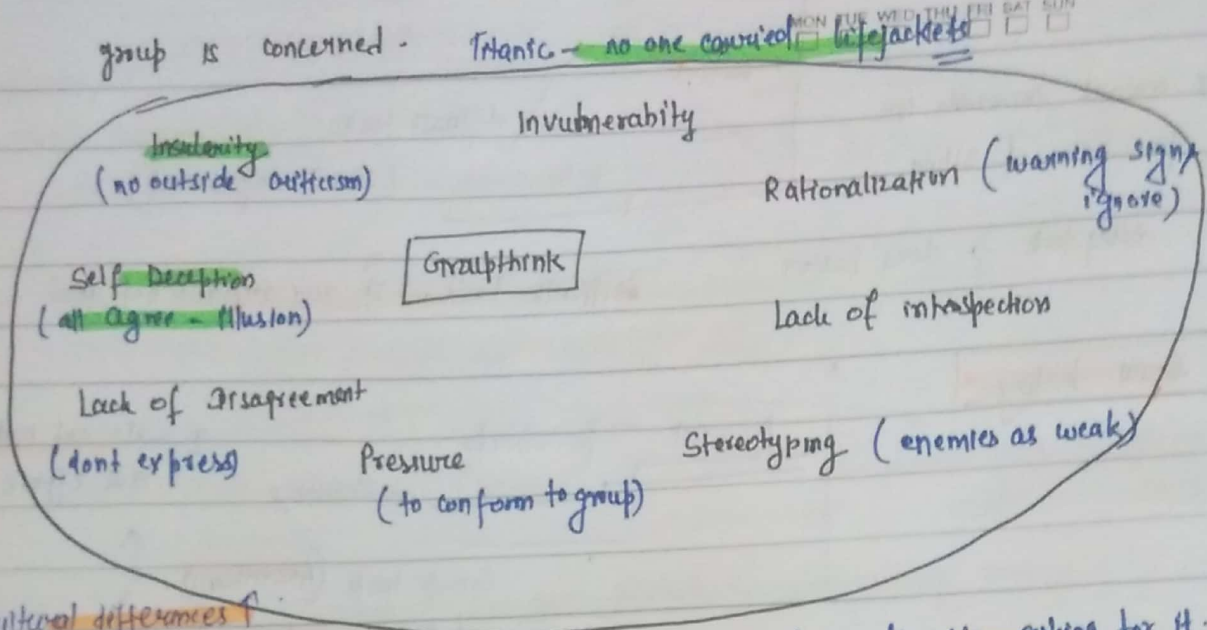 MON TUE WED THU FRI SAT SUN
group is concerned. Titanic - no one carried lifejackets
Invulnerabity
Insulerity
(no outside criticism)
Rationalization (warning sign
ignore)
Groupthink
Self Deception
(all agree - illusion)
Lack of introspection
Lack of Disagreement
(dont express)
Pressure
(to conform to group)
Stereotyping (enemies as weak)
differences ↑
for it.